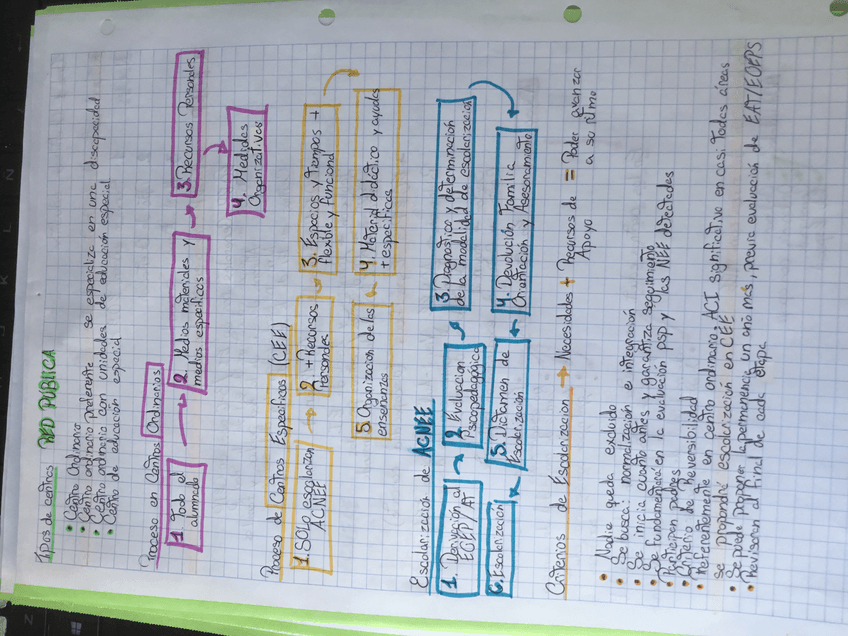 Tipos de centros RED PÚBLICA
• Centro Ordinario
• Centro ordinario preferente → se especializa en una discapacidad
• Centro ordinario con unidades de educación especial
• Centro de educación especial
Proceso en Centros Ordinarios
1. Todo el alumnado
2. Medios materiales y medios específicos
3. Recursos Personales
4. Medidas Organizativas
Proceso de Centros Específicos (CEE)
1. Sólo escolarizan ACNEE
2. + Recursos Personales
3. Espacios y tiempos + flexible y funcional
4. Material didáctico y ayudas + específicas
5. Organización de las enseñanzas
Escolarización de ACNEE
1. Derivación al EOEP / AT
2. Evaluación Psicopedagógica
3. Diagnostico y determinación de la modalidad de escolarización
4. Devolución Familia Orientación y Asesoramiento
5. Dictamen de Escolarización
6. Escolarización
Criterios de Escolarización → Necesidades + Recursos de Apoyo = Poder avanzar a su ritmo
• Nadie queda excluido
• Se busca: normalización e integración
• Se inicia cuanto antes y garantiza seguimiento
• Se fundamentará en la evaluación psp y las NEE detectadas
• Participen padres
• Criterio de Reversibilidad
• Preferentemente en centro ordinario, ACI significativa en casi todas áreas
se propondrá escolarización en CEE
• Se puede proponer la permanencia un año más, previa evaluación de EAT/EOEPS
• Revisarán al final de cada etapa